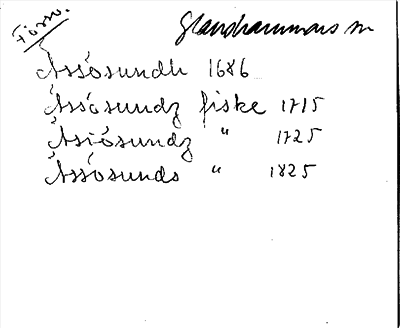 Försv.
Glanshammars sn
Åssösundh 1686
Åssösundz fiske 1715
Åsiösundz " 1725
Åssösunds " 1825